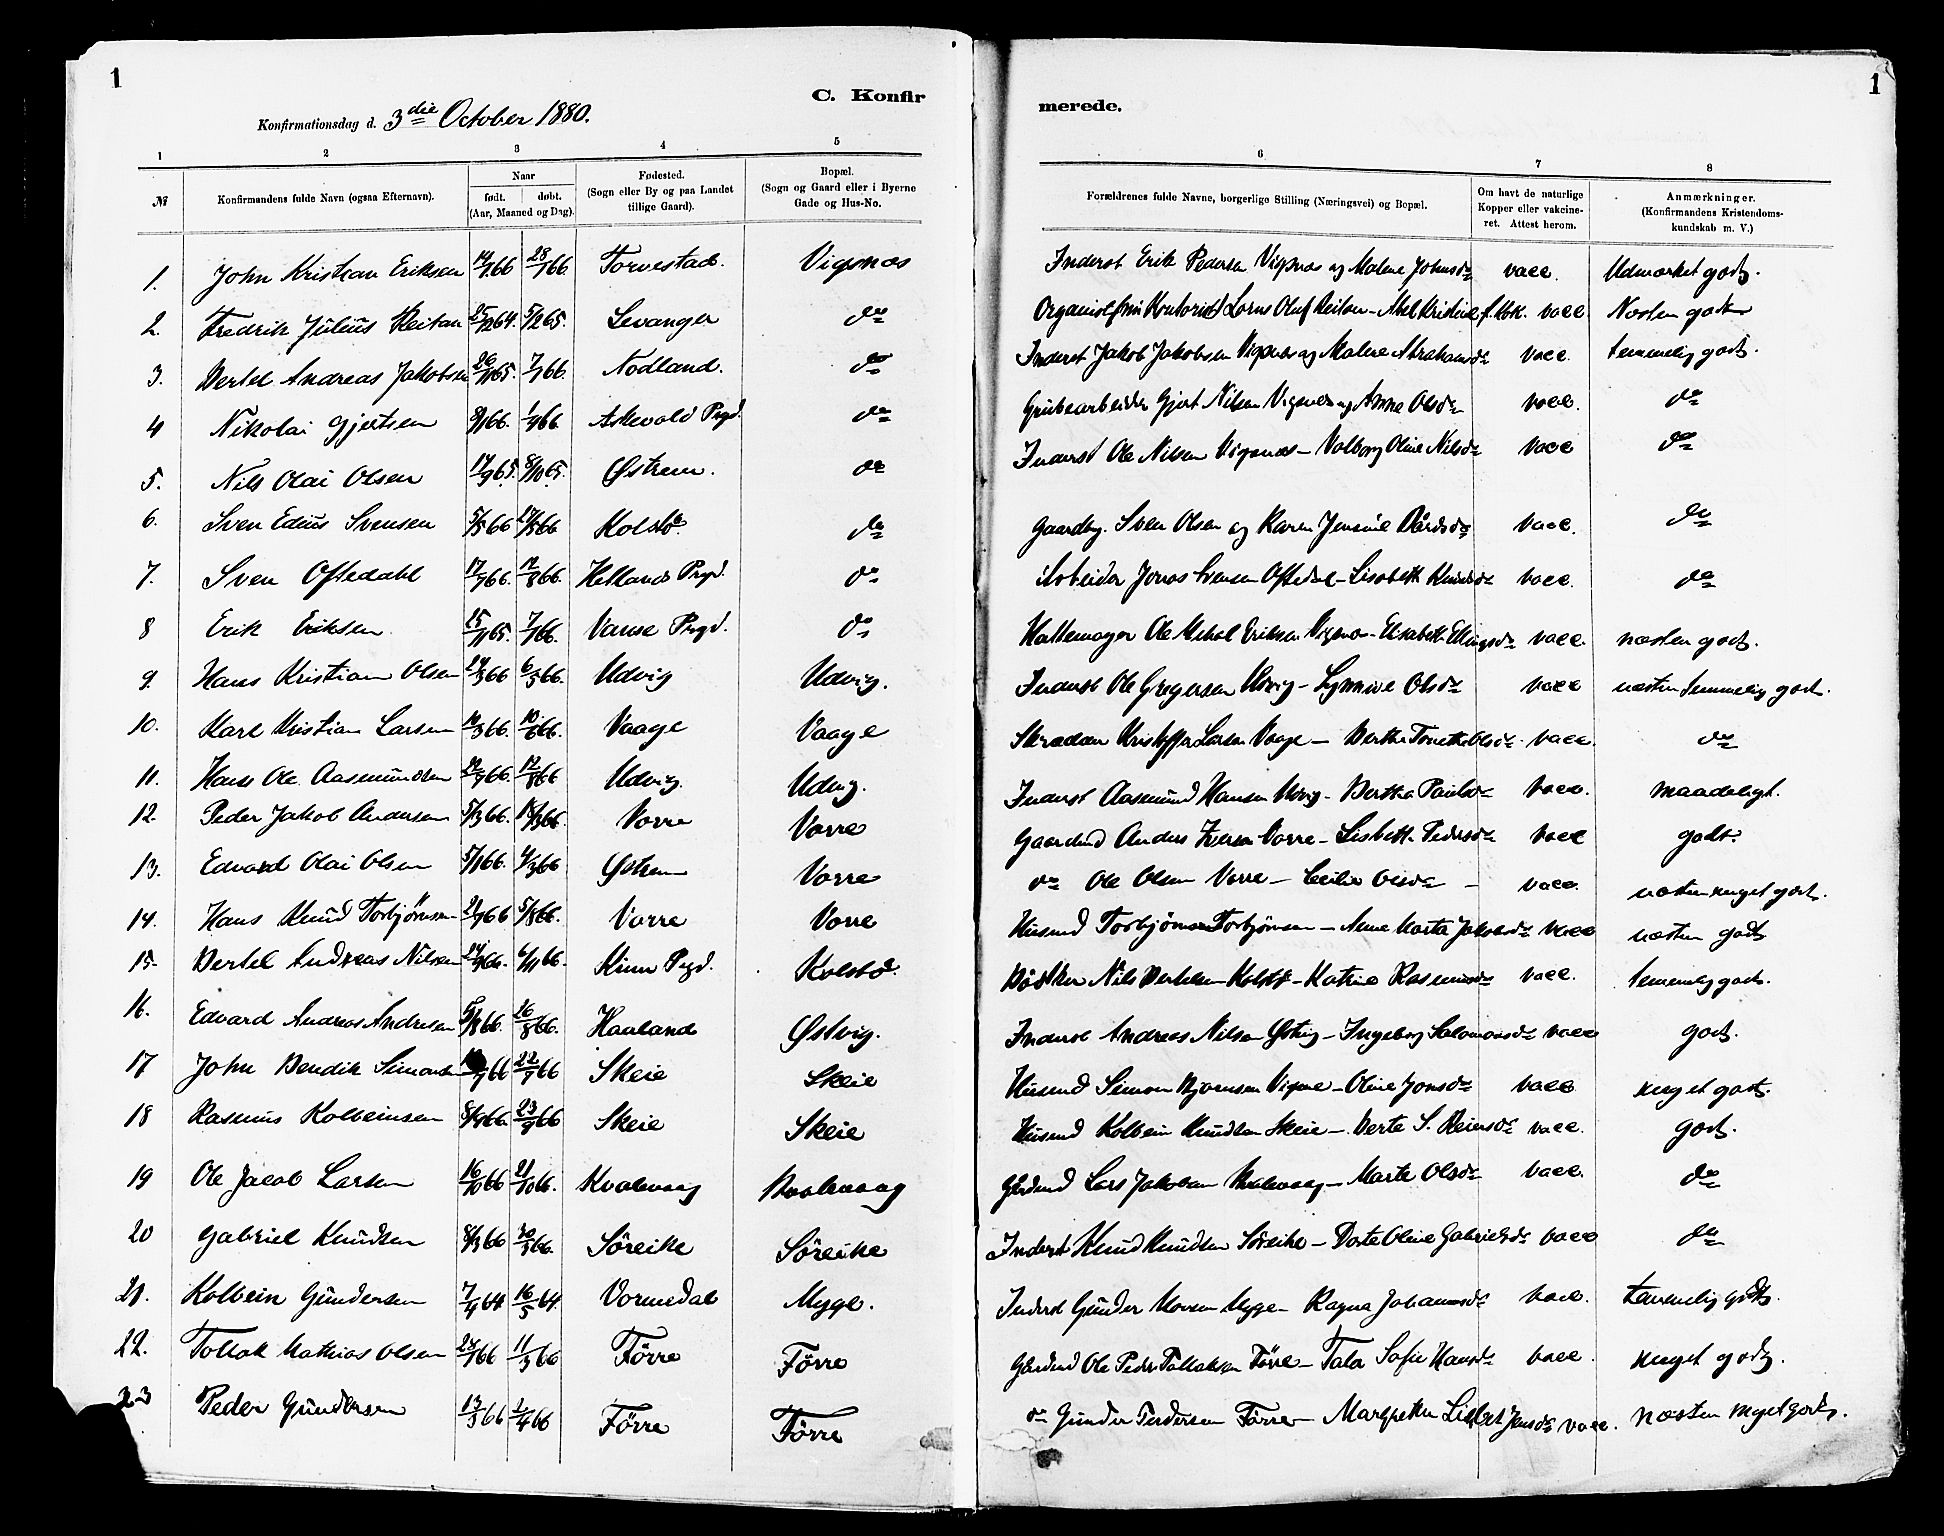 1
C. Konfir
merede.
1
Konfirmationsdag d. 3die October 1880.
1 2 3 4 5 6 7 8
№ Konfirmandens fulde Navn (ogsaa Efternavn). Naar født. døbt. (Aar, Maaned og Dag). Fødested. (Sogn eller By og paa Landet tillige Gaard). Bopæl. (Sogn og Gaard eller i Byerne Gade og Hus-No. Forældrenes fulde Navne, borgerlige Stilling (Næringsvei) og Bopæl. Om havt de naturlige Kopper eller vakcineret. Attest herom. Anmærkninger. (Konfirmandens Kristendomskundskab m. V.)
1. John Kristian Eriksen 28/1 66. Torvestad. Vigsnæs Inderst Erik Pedersen Vigsnæs og Malene Johnsdr vacc. Udmærket godt.
2. Fredrik Julius Reitan 25/12 64. 5/2 65. Levanger do vacc. Næsten godt
3. Bertel Andreas Jakobsen 26/11 65. 7/1 66. Nodland. do Inderst Jakob Jakobsen Vigsnæs og Malene Abrahamsdr vacc. temmelig godt.
4 Nikolai Gjertsen 1/4 66 Askevold Prgd. do Grubearbeider Gjert Nilsen Vigsnæs og Anne Olsdr vacc. do
5. Nils Olai Olsen 17/9 65. 8/10 65. Østrem. do Inderst Ole Nilsen Vigsnæs – Valborg Oline Nilsdr vacc do
6. Sven Edius Svensen 5/5 66 Kolstø. do Gaardbr. Sven Olsen og Karen Jensine Bårdsdr vacc. do
7. Sven Oftedahl 12/8 66. Hetlands Prgd. do Arbeider Jonas Svensen Oftedal – Lisabeth Knudsdr vacc. do
8 Erik Eriksen 15/11 65. 7/1 66. Vanse Prgd. do Ole Mikal Eriksen Vigsnæs – Elisabeth Ellingsdr vacc. næsten godt.
9. Hans Kristian Olsen 24/3 66 6/5 66. Udvig Udvig. Inderst Ole Gregersen Udvig – Synnive Olsdr vacc næsten temmelig godt.
10. Karl Kristian Larsen 14/3 66. 10/6 66. Vaage Vaage Skrædder Kristoffer Larsen Vaage – Berthe Tonette Olsdr vacc. do
11. Hans Ole Aasmundsen 12/8 66 Udvig. Udvig. Inderst Aasmund Hansen Udvig – Berthe Paulsdr vacc. maadeligt.
12. Peder Jakob Andersen 5/3 66. 18/3 66. Vorre Vorre Gaardmd Anders Iversen Vorre – Lisbeth Pedersdr vacc godt.
13. Edvard Olai Olsen 5/1 66. 4/3 66 Østrem Vorre do Ole Olsen Vorre – Cecilie Olsdr – vacc. næsten meget godt.
14. Hans Knud Torbjørnsen 21/7 66 5/8 66. Vorre Vorre Husmd Torbjørn Torbjørnsen – Anne Marta Jakobsdr vacc næsten godt
15. Bertel Andreas Nilsen 24/9 66. 4/11 66. Kinn Prgd. Kolstø. Bødker Nils Bertelsen Kolstø – Katrine Rasmusdr vacc. temmelig godt.
16. Edvard Andreas Andresen 5/8 66. 26/8 66. Haaland Østvig. Inderst Andreas Nilsen Østvig – Ingeborg Salomonsdr vacc godt.
17 John Bendik Simonsen 22/7 66 Skeie Skeie Husmd Simon Bjørnsen Vigsne – Oline Jonsdr vacc meget godt.
18 Rasmus Kolbeinsen 8/9 66. 23/9 66 Skeie Skeie Husmd Kolbein Knudsen Skeie – Berte S. Reiersdr vacc. godt.
19 Ole Jacob Larsen 16/10 66 21/10 66. Kvalevaag Kvalevaag Gårdmd Lars Jakobsen Kvalevaag – Marte Olsdr vacc. do
20 Gabriel Knudsen 8/3 66 30/3 66. Søreike Søreike Inderst Knud Knudsen Søreike – Dorte Oline Gabrielsdr vacc do
21. Kolbein Gundersen 7/4 64 16/5 64. Vormedal Myge. Inderst Gunder Myge – Ragna Johannesdr vacc. temmelig godt.
22. Tollak Mathias Olsen 24/1 66 11/3 66 Førre Førre Gårdmd Ole Peder Tollaksen Førre – Tala Sofie Hansdr vacc. meget godt.
23 Peder Gundersen 13/3 66 2/4 66 Førre Førre do Gunder Pedersen Førre – Margrethe Lisbet Jensdr vacc. næsten meget godt.